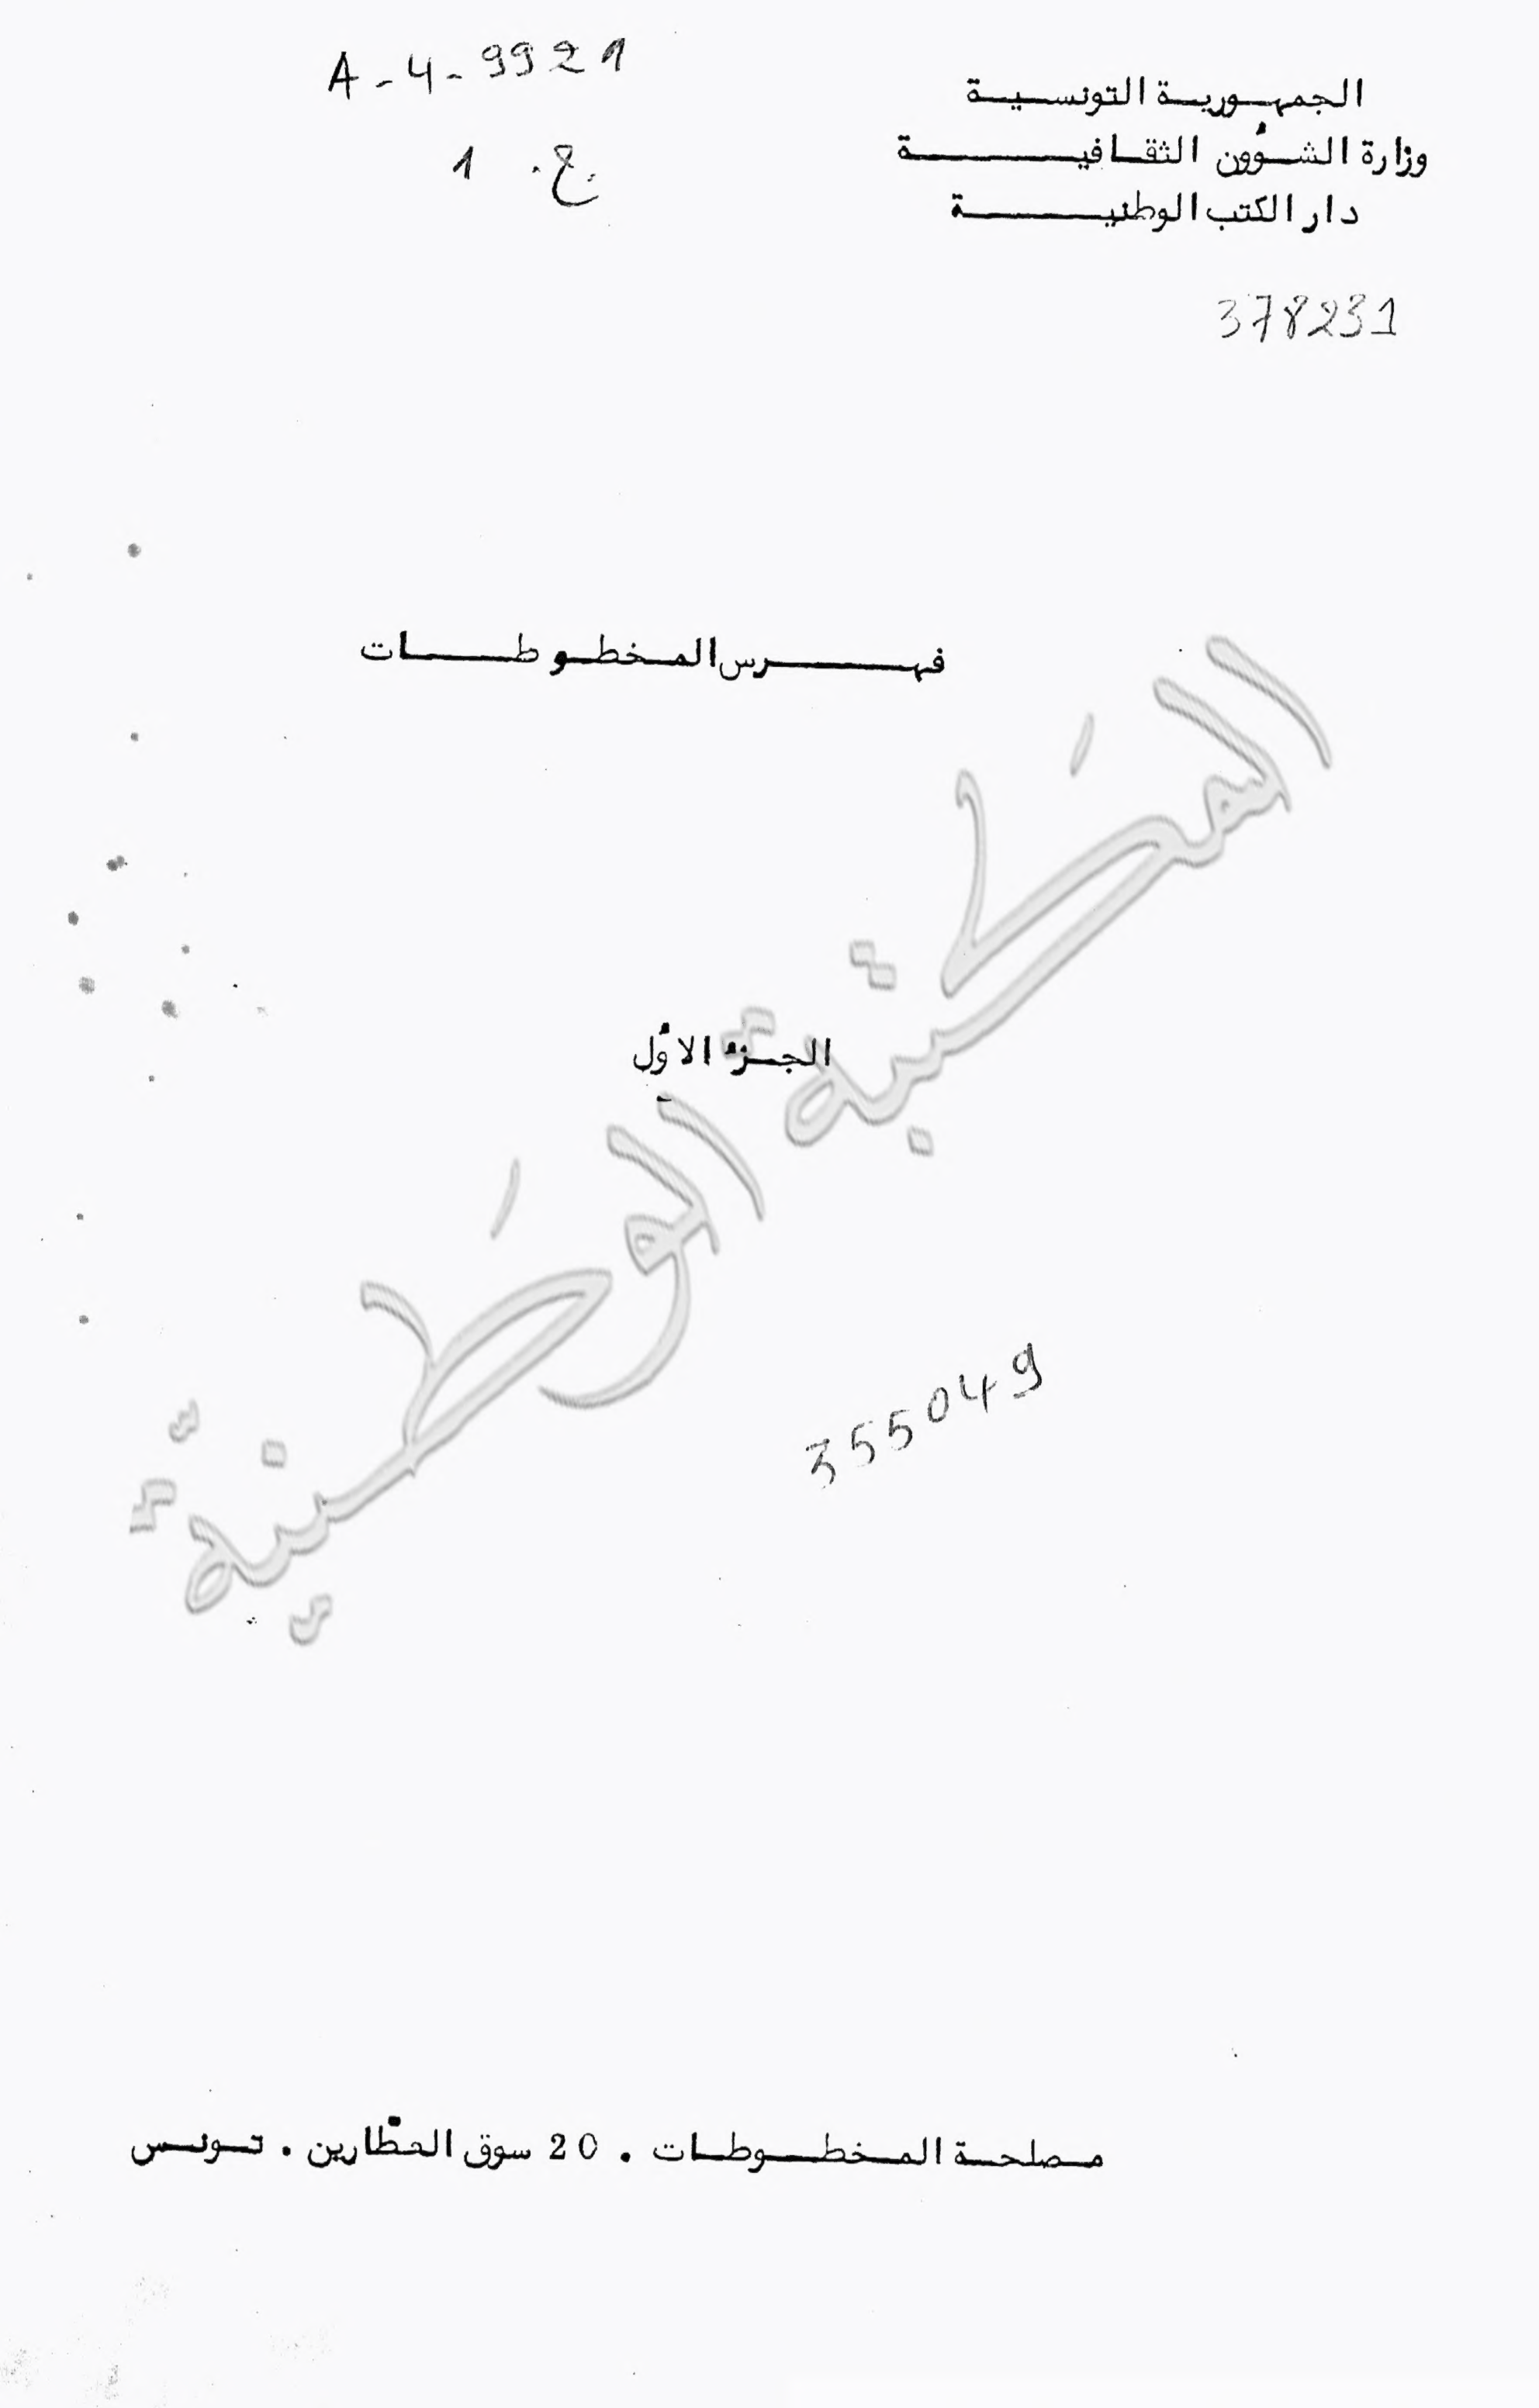 A-4-9921
ج. 1
الجمهورية التونسية
وزارة الشؤون الثقافية
دار الكتب الوطنية
378231
فهرس المخطوطات
الجزء الأول
المكتبة الوطنية
355049
مصلحة المخطوطات . 20 سوق العطّارين . تونس